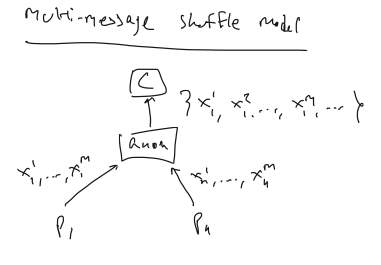 Multi-message shuffle model
C
} x_1^1, x_1^2, ..., x_1^m, ... }
anon
x_1^1, ..., x_1^m
x_n^1, ..., x_n^m
P_1
P_n